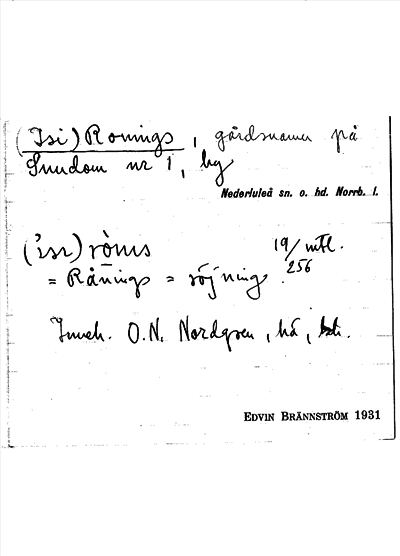 (Isi) Ronings, gårdsnamn på
Sundom nr 1, hg
Nederluleå sn. o. hd. Norrb. l.
('isi) rònıs 19/mtl.
= Rånings = röjnings. 256
Inneh. O.N. Nordgren, hå,
EDVIN BRÄNNSTRÖM 1931